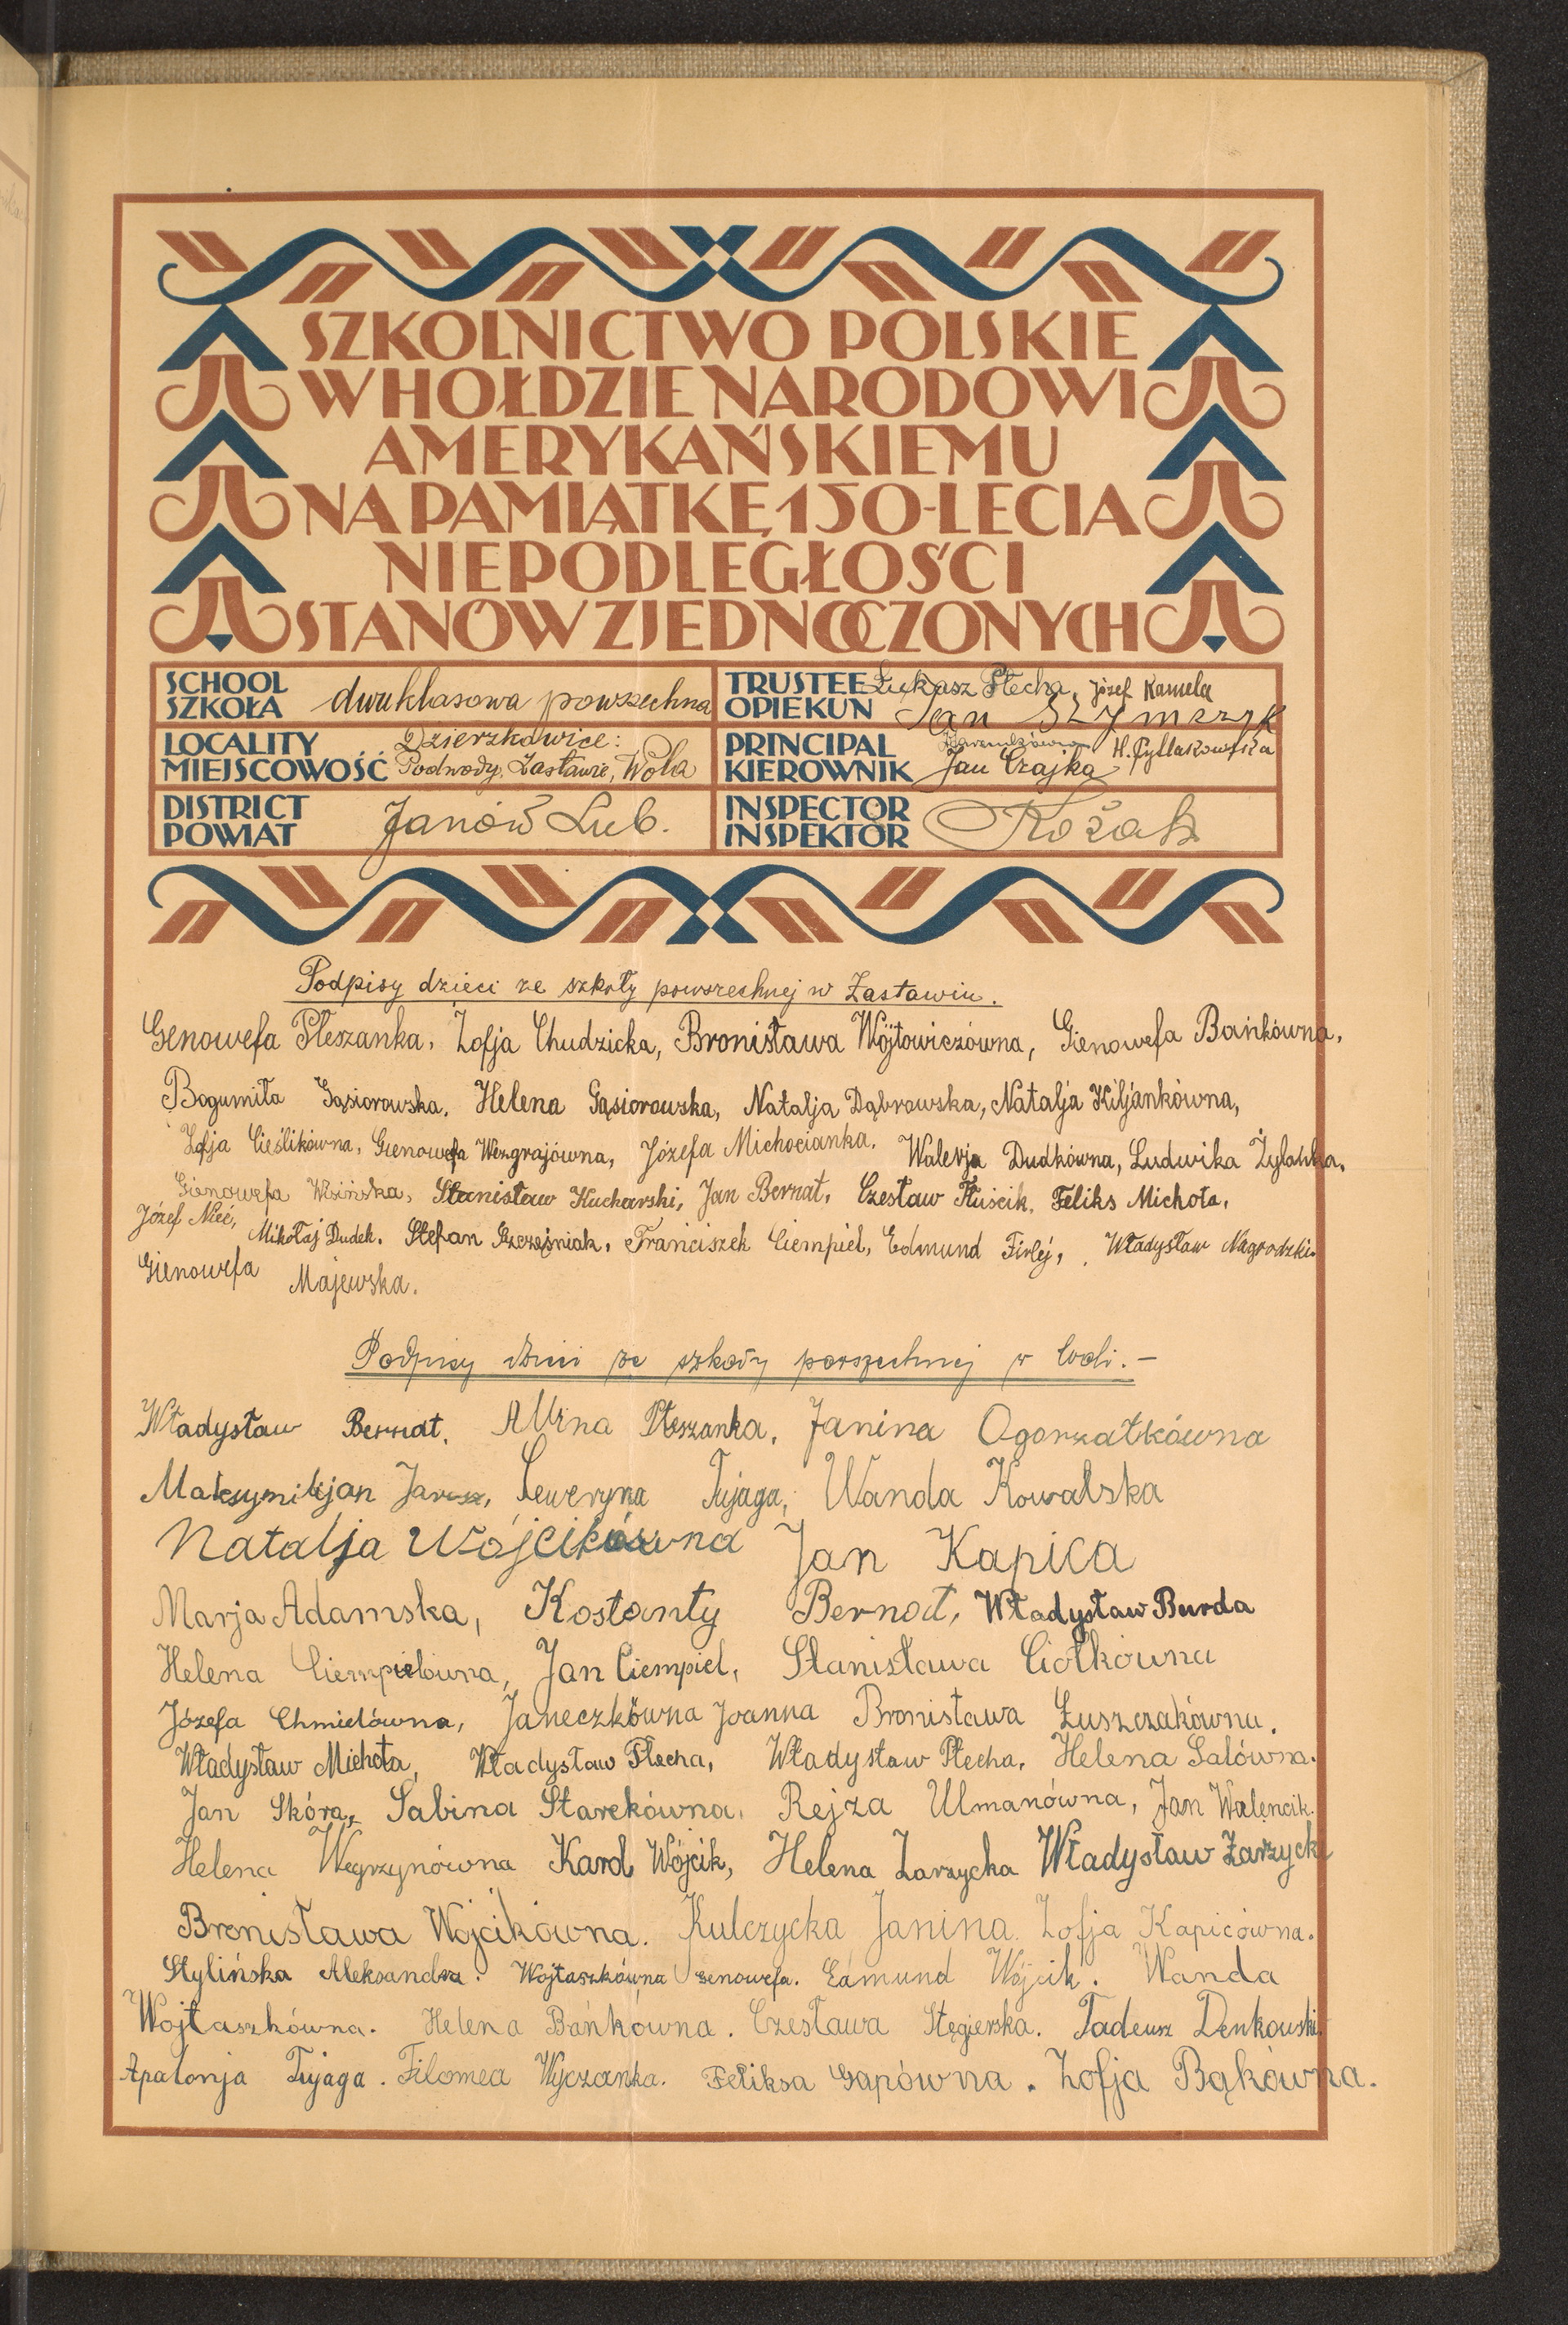 SZKOLNICTWO POLSKIE
W HOŁDZIE NARODOWI
AMERYKAŃSKIEMU
NA PAMIĄTKĘ 150-LECIA
NIEPODLEGŁOŚCI
STANÓW ZJEDNOCZONYCH
SCHOOL
SZKOŁA dwuklasowa powszechna
TRUSTEE Łukasz Płecha, Józef Kamela
OPIEKUN Jan Szymczyk
LOCALITY Dzierzkowice:
MIEJSCOWOŚĆ Podwody, Zastawie, Wola
PRINCIPAL H. Pyllakowska
KIEROWNIK Jan Czajka
DISTRICT
POWIAT Janów Lub.
INSPECTOR
INSPEKTOR Kozak
Podpisy dzieci ze szkoły powszechnej w Zastawiu.
Genowefa Płeszanka, Zofja Chudzicka, Bronisława Wójtowiczówna, Gienowefa Bańkówna,
Bogumiła Gąsiorowska, Helena Gąsiorowska, Natalja Dąbrowska, Natalja Kiljankówna,
Zofja Cieślikówna, Gienowefa Węzgrajówna, Józefa Michocianka, Walerja Dudkówna, Ludwika Żylanka,
Gienowefa Wisińska, Stanisław Kucharski, Jan Bernat, Czesław Tłuścik, Feliks Michota,
Józef Nieć, Mikołaj Dudek, Stefan Szcześniak, Franciszek Ciempiel, Edmund Firlej, Władysław Nagrodzki
Gienowefa Majewska.
Podpisy dzieci ze szkoły powszechnej w Woli.-
Władysław Bernat, Alina Płeszanka, Janina Ogorzałkówna
Maksymiljan Jarosz, Seweryna Tujaga, Wanda Kowalska
Natalja Wójcikówna Jan Kapica
Marja Adamska, Kostanty Bernat, Władysław Burda
Helena Ciempielówna, Jan Ciempiel, Stanisława Ciołkówna
Józefa Chmielówna, Janeczkówna Joanna Bronisława Łuszczakówna.
Władysław Michota, Władysław Płecha, Władysław Płecha, Helena Salówna.
Jan Skóra, Sabina Starekówna, Rejza Ulmanówna, Jan Walencik.
Helena Węgrzynówna Karol Wójcik, Helena Zarzycka Władysław Zarzycki
Bronisława Wójcikówna. Kulczycka Janina. Zofja Kapicówna.
Stylińska Aleksandra. Wojtaszkówna Genowefa. Edmund Wójcik. Wanda
Wojtaszkówna. Helena Bańkówna. Czesława Stęgierska. Tadeusz Denkowski.
Apalonja Tujaga. Filomea Wyczanka. Feliksa Gapówna. Zofja Bąkówna.